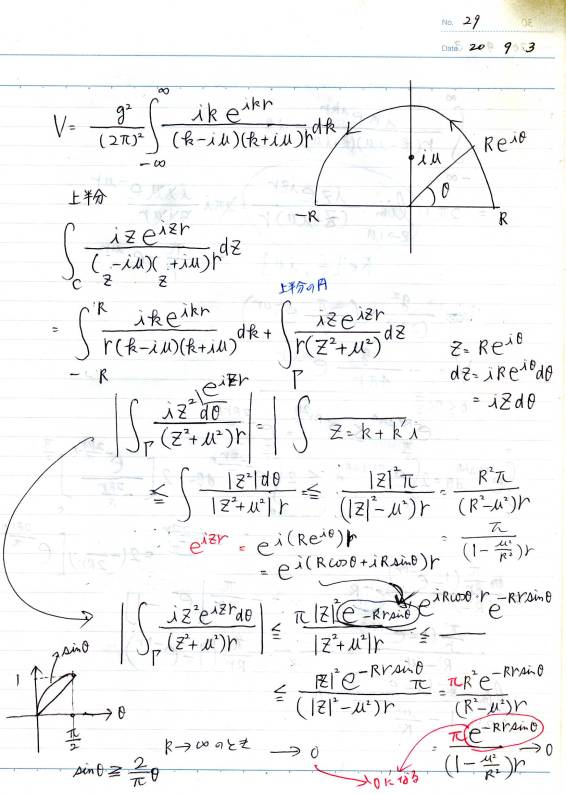 No. 29
Date 20 9 3
V = g²/(2π)² ∫_{-∞}^{∞} ik e^{ikr}/((k-iμ)(k+iμ)r) dk
iμ
Re^{iθ}
θ
-R R
上半分
∫_C iz e^{izr}/((z-iμ)(z+iμ)r) dz
上半分の円
= ∫_{-R}^{R} ik e^{ikr}/(r(k-iμ)(k+iμ)) dk + ∫_Γ iz e^{izr}/(r(z²+μ²)) dz
z = Re^{iθ}
dz = iRe^{iθ}dθ
= izdθ
|∫_Γ iz² e^{izr} dθ/((z²+μ²)r)| = |∫ ‾ z = k + k'i
≦ ∫ |z²|dθ/(|z²+μ²|r) ≦ |z|²π/((|z|²-μ²)r) = R²π/((R²-μ²)r)
= π/((1-μ²/R²)r)
e^{izr} = e^{i(Re^{iθ})r}
= e^{i(Rcosθ+iRsinθ)r}
e^{iRcosθ·r} e^{-Rrsinθ}
|∫_Γ iz²e^{izr}dθ/((z²+μ²)r)| ≦ π|z|²e^{-Rrsinθ}/(|z²+μ²|r) ≦ ―
≦ |z|²e^{-Rrsinθ}π/((|z|²-μ²)r) = πR²e^{-Rrsinθ}/((R²-μ²)r)
= πe^{-Rrsinθ}/((1-μ²/R²)r) → 0
sinθ
1
θ
π/2
R→∞のとき → 0
0になる
sinθ ≧ 2/π θ